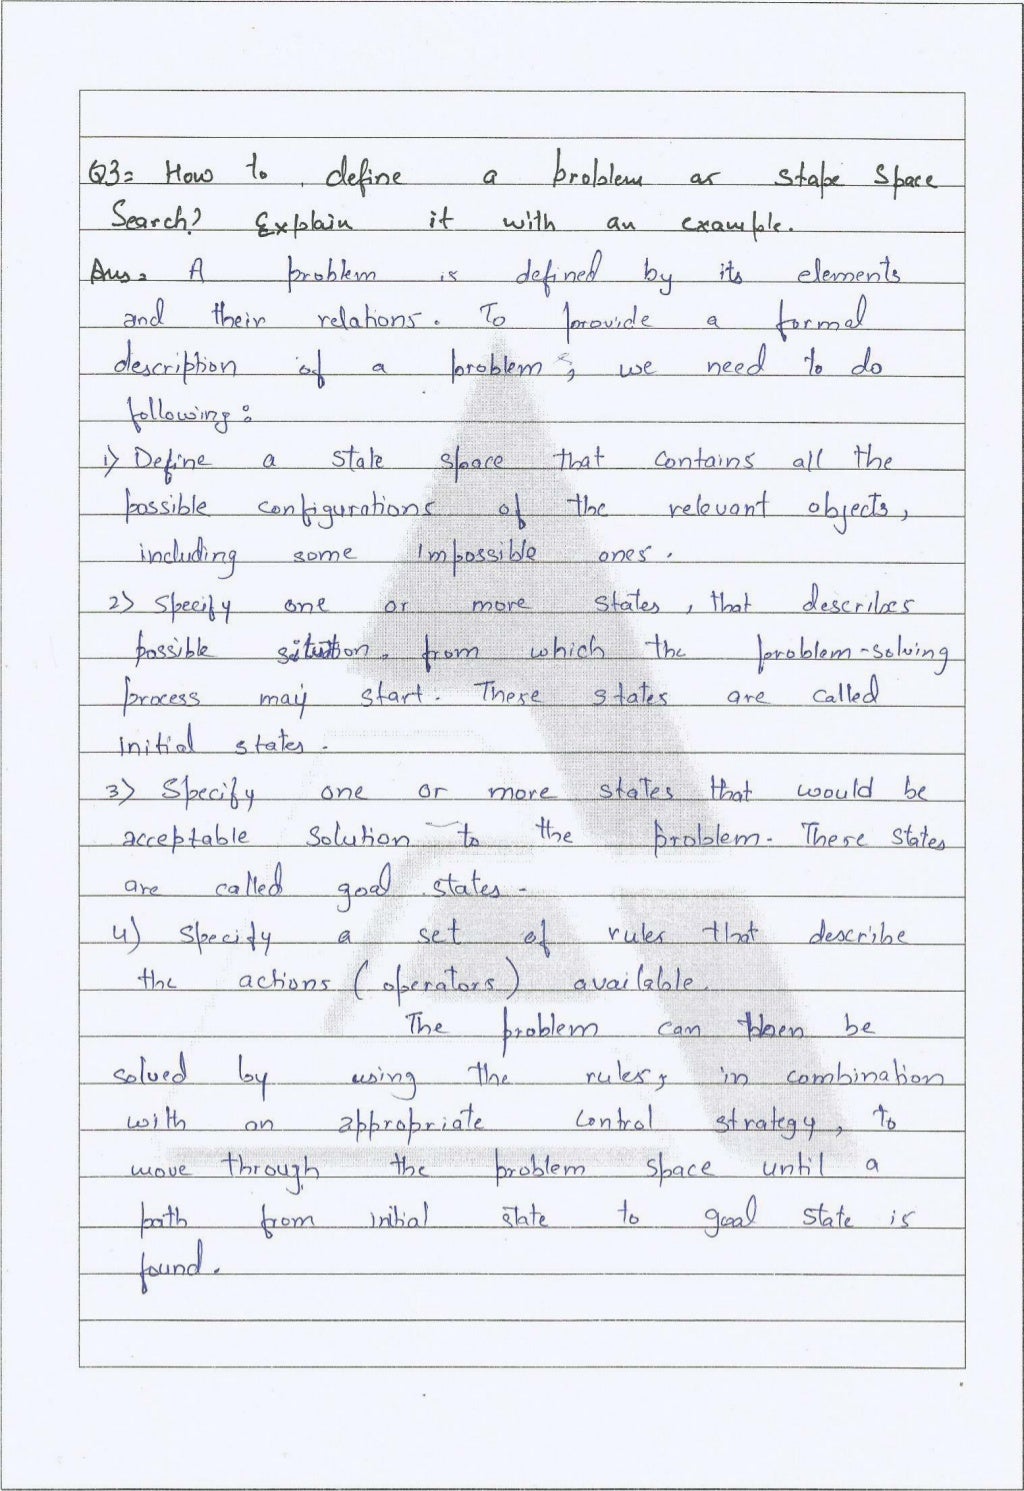 Q3= How to define a problem as stape Space
Search? Explain it with an example.
Ans= A problem is defined by its elements
and their relations. To provide a formal
description of a problem, we need to do
following:
1) Define a state space that contains all the
possible configurations of the relevant objects,
including some impossible ones.
2) Specify one or more states, that describes
possible situation, from which the problem-solving
process may start. These states are called
initial states.
3) Specify one or more states that would be
acceptable solution to the problem. These states
are called goal states.
4) Specify a set of rules that describe
the actions (operators) available.
The problem can then be
solved by using the rules, in combination
with an appropriate control strategy, to
move through the problem space until a
path from initial state to goal state is
found.